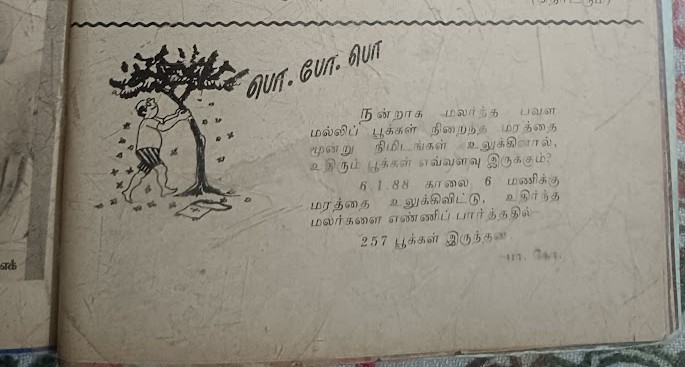 பொ. போ. பொ
நன்றாக மலர்ந்த பவள
மல்லிப் பூக்கள் நிறைந்த மரத்தை
மூன்று நிமிடங்கள் உலுக்கினால்,
உதிரும் பூக்கள் எவ்வளவு இருக்கும்?
6.1.88 காலை 6 மணிக்கு
மரத்தை உலுக்கிவிட்டு, உதிர்ந்த
மலர்களை எண்ணிப் பார்த்ததில்
257 பூக்கள் இருந்தன